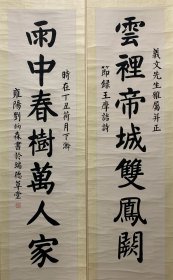 義文先生雅屬并正
雲裡帝城雙鳳闕
節錄王摩詰詩
時在丁丑荷月下澣
雨中春樹萬人家
雍陽劉炳森書於瑞德草堂